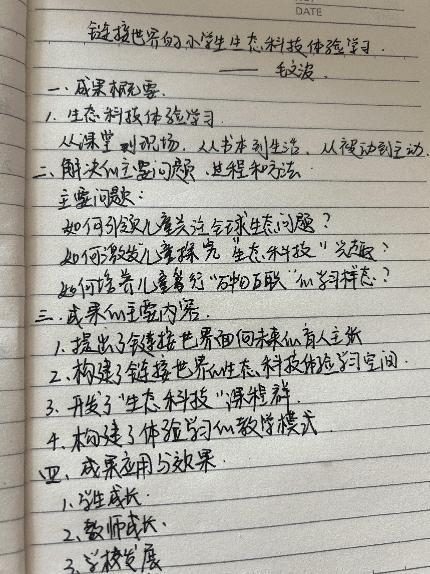 DATE
链接世界的小学生生态科技体验学习.
—— 毛文波.
一. 成果概要.
1. 生态科技体验学习.
从课堂到现场. 从书本到生活. 从被动到主动.
二、解决的主要问题、过程和方法
主要问题:
如何引领儿童关注全球生态问题?
如何激发儿童探究"生态科技"兴趣?
如何培养儿童践行"万物互联"的学习样态?
三. 成果的主要内容.
1. 提出了链接世界面向未来的育人主张
2. 构建了链接世界的生态科技体验学习空间.
3. 开发了"生态科技"课程群.
4. 构建了体验学习的教学模式
四、成果应用与效果.
1. 学生成长.
2. 教师成长.
3. 学校发展